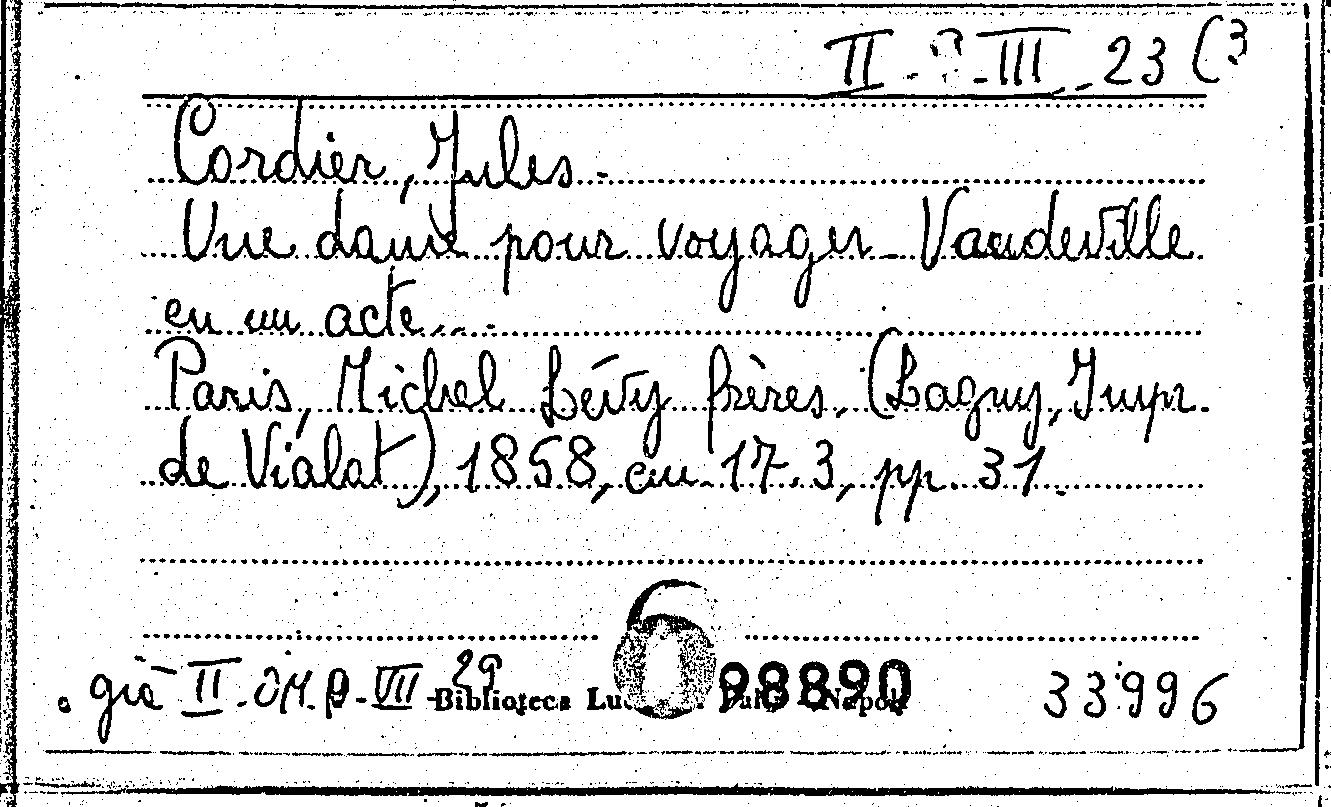 II - - III - 23 (3
Cordier, Jules.
Une dame pour voyager. Vaudeville
en un acte...
Paris, Michel Lévy frères, (Lagny, Impr.
de Vialat), 1858, cm. 17.3, pp. 31.
già II - - VII - 29
Biblioteca Napoli
98890
33996